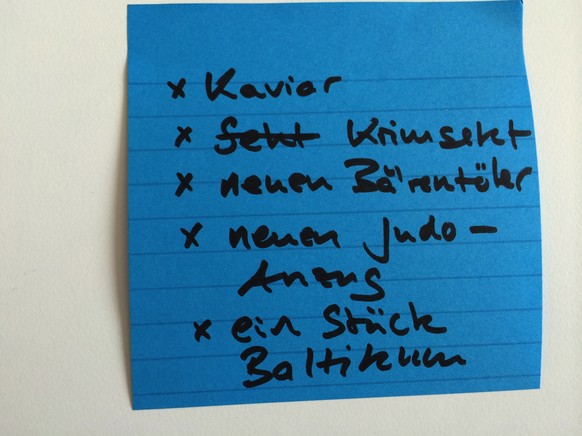 x Kaviar
x Sekt Krimsekt
x neuen Bärentöter
x neuen Judo-
Anzug
x ein Stück
Baltikum